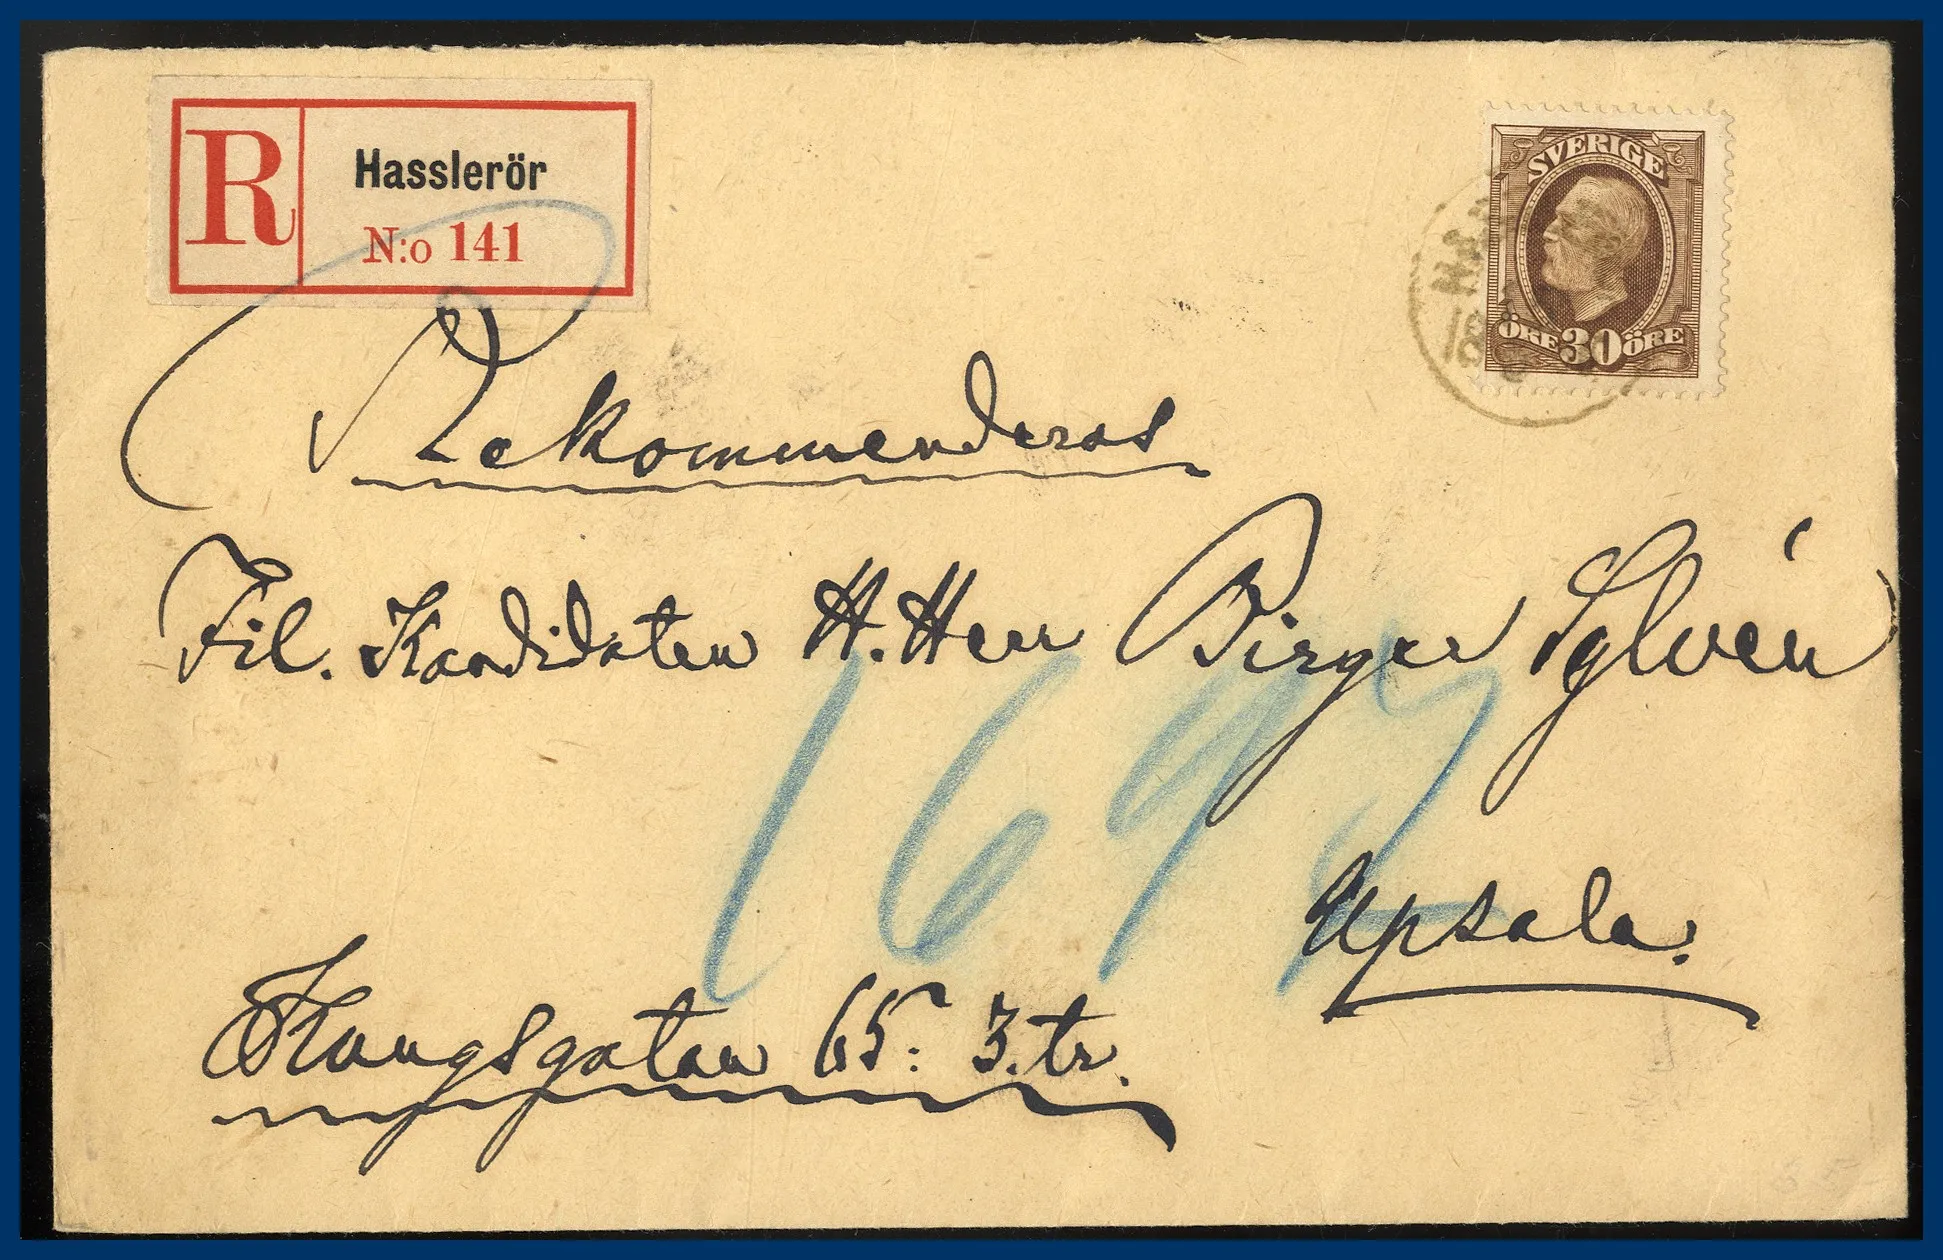 R
Hasslerör
N:o 141
SVERIGE
ÖRE 30 ÖRE
Rekommenderas
Fil. Kandidaten H. Herr Birger Sylvén
Upsala.
Kungsgatan 65. 3. tr.